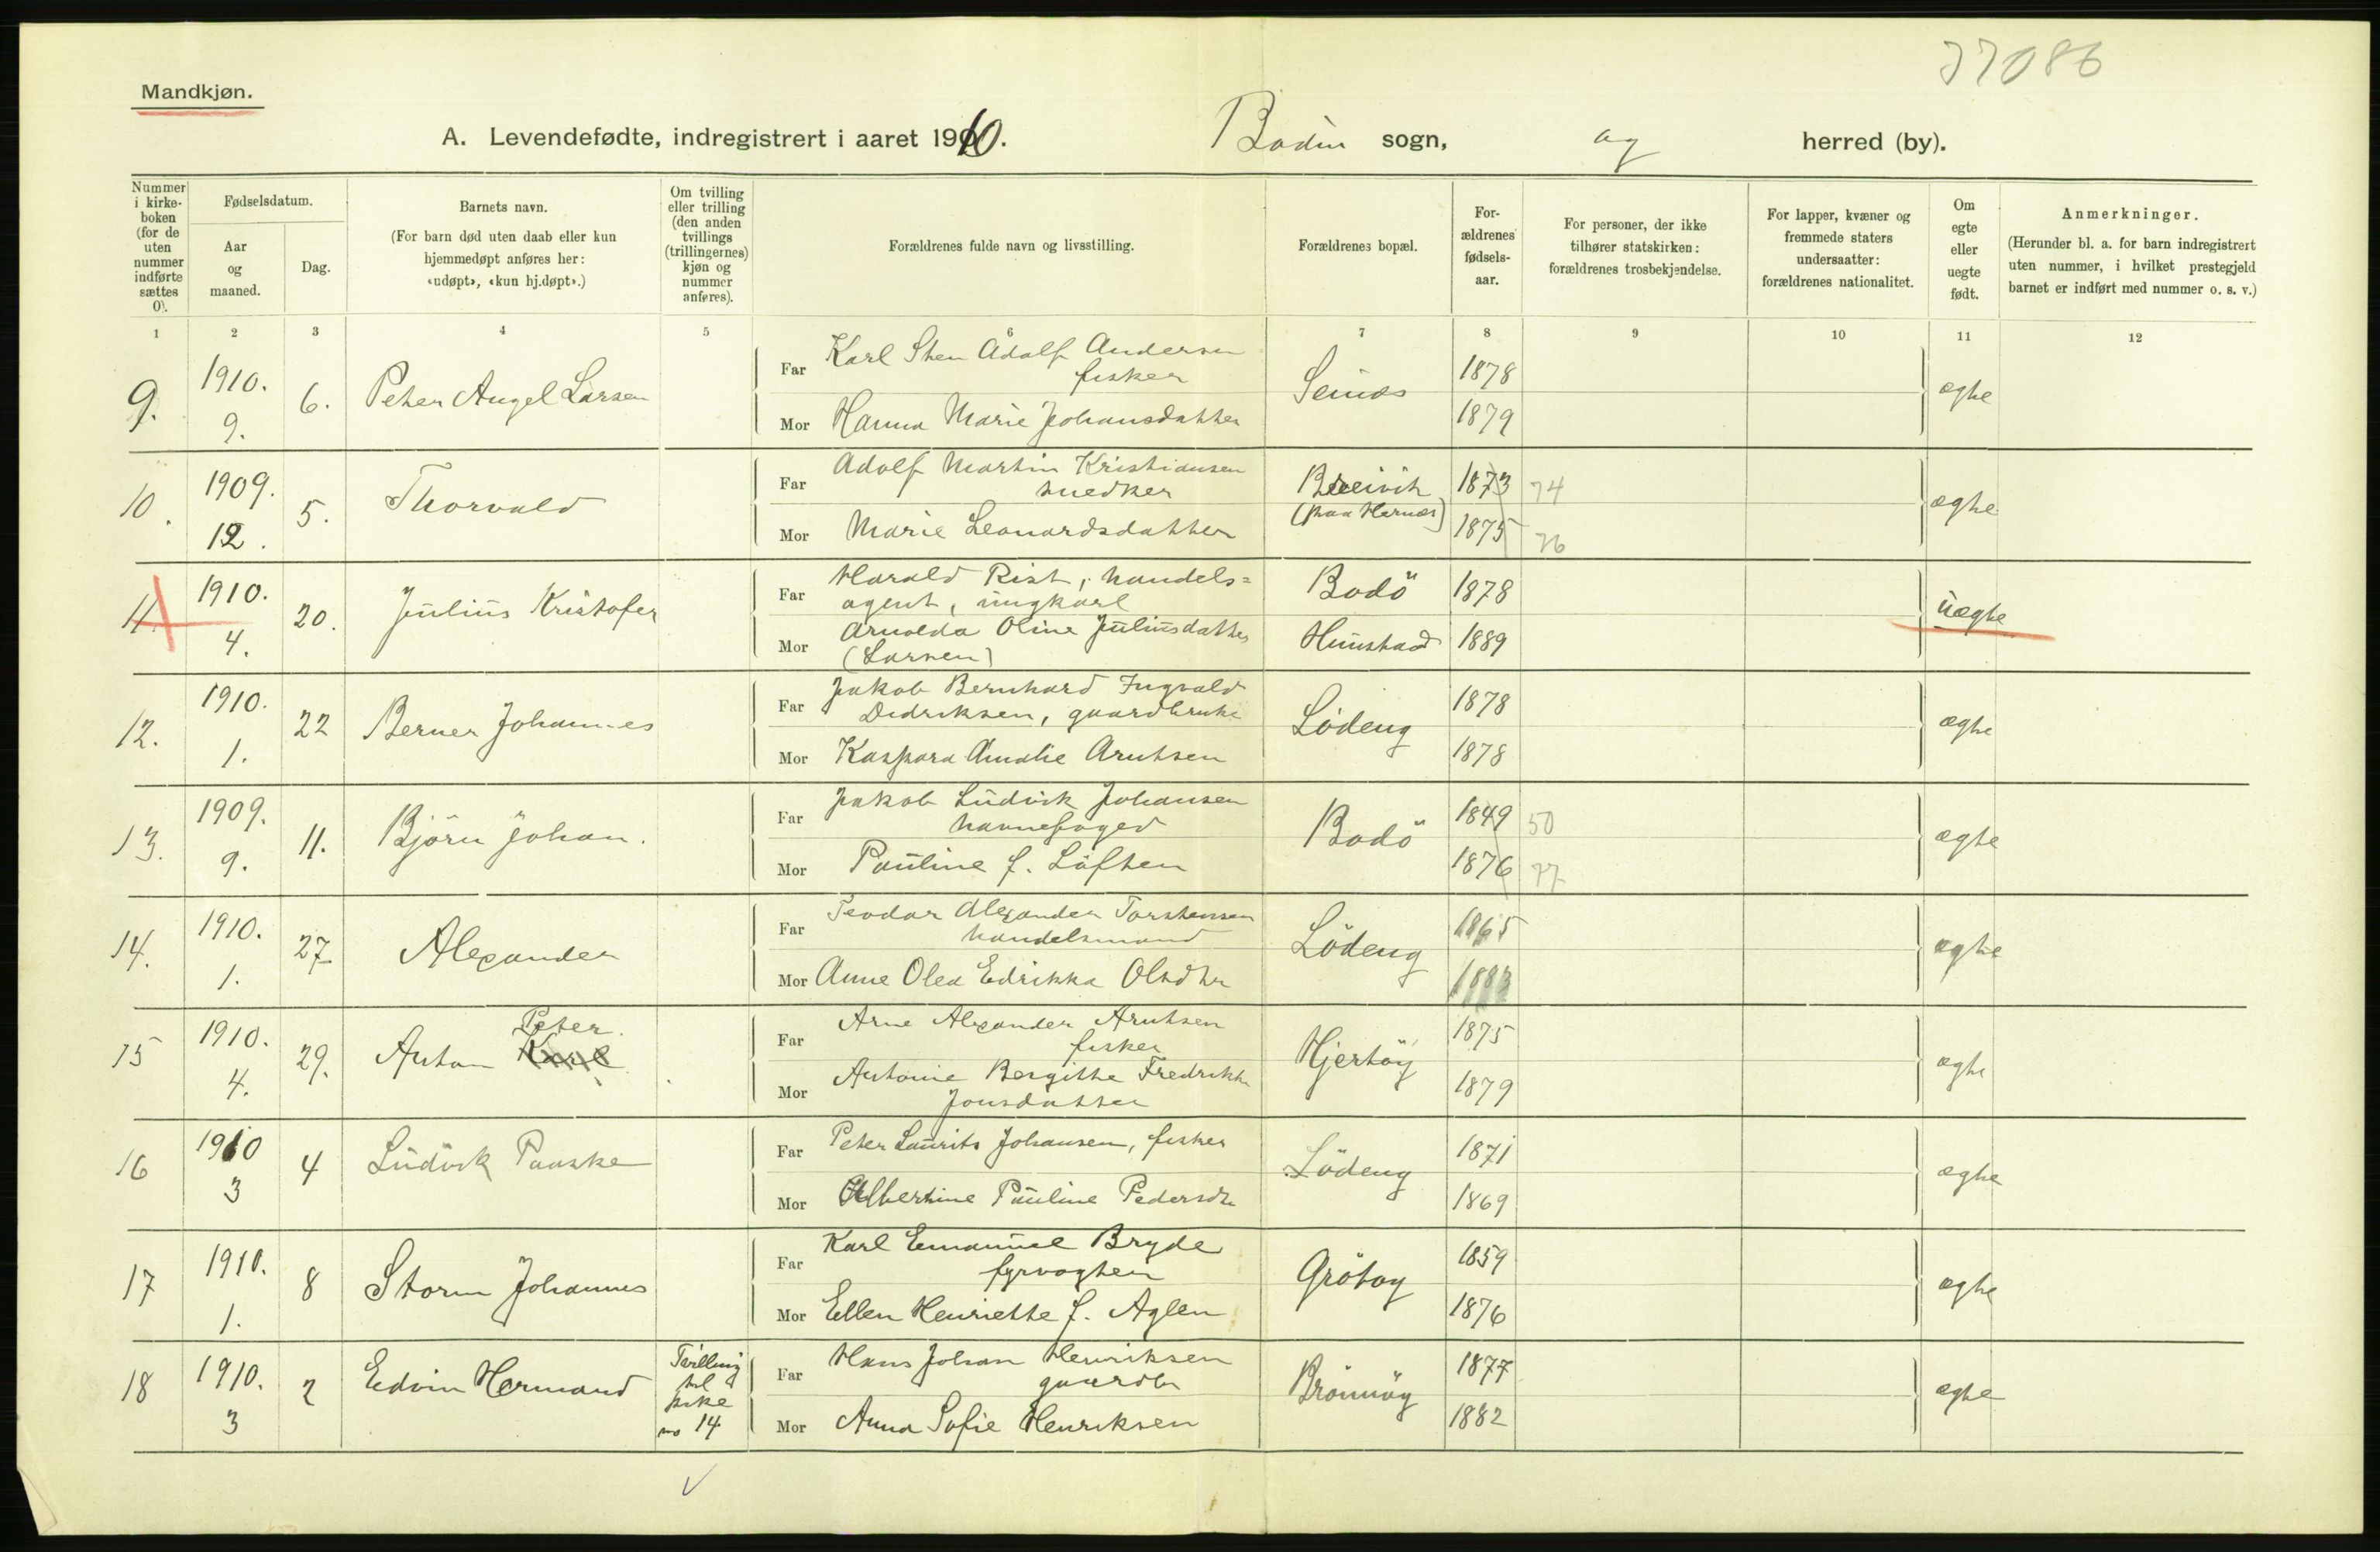 37086
Mandkjøn.
A. Levendefødte, indregistrert i aaret 1910. Bodin sogn, og herred (by).
Nummer i kirke-boken (for de uten nummer indførte sættes 0).
Fødselsdatum.
Aar og maaned.
Dag.
Barnets navn.
(For barn død uten daab eller kun
hjemmedøpt anføres her:
«udøpt», «kun hj.døpt».)
Om tvilling
eller trilling
(den anden
tvillings
(trillingernes)
kjøn og
nummer
anføres).
Forældrenes fulde navn og livsstilling.
Forældrenes bopæl.
For-
ældrenes
fødsels-
aar.
For personer, der ikke
tilhører statskirken:
forældrenes trosbekjendelse.
For lapper, kvæner og
fremmede staters
undersaatter:
forældrenes nationalitet.
Om
egte
eller
uegte
født.
Anmerkninger.
(Herunder bl. a. for barn indregistrert
uten nummer, i hvilket prestegjeld
barnet er indført med nummer o. s. v.)
1 2 3 4 5 6 7 8 9 10 11 12
9. 1910. 9. 6. Peter Angel Larsen
Far Karl Sten Adolf Andersen
fisker
Mor Hanna Marie Johansdatter
Seines 1878 1879 ægte
10. 1909. 12. 5. Thorvald
Far Adolf Martin Kristiansen
snedker
Mor Marie Leonardsdatter
Breivik
(paa Hernes)
1873 74
1875 76
ægte
11. 1910. 4. 20. Julius Kristofer
Far Harald Rist, handels=
agent, ungkarl
Mor Arnolda Oline Juliusdatter
(Larsen)
Bodö 1878
Hunstad 1889
uægte
12. 1910. 1. 22 Berner Johannes
Far Jakob Bernhard Ingvald
Didriksen, gaardbruker
Mor Kaspara Amalie Arntsen
Lödeng 1878 1878 ægte
13. 1909. 9. 11. Björn Johan.
Far Jakob Ludvik Johansen
havnefoged
Mor Pauline f. Löften
Bodö
1849 50
1876 77
ægte
14. 1910. 1. 27. Alexander
Far Teodor Alexander Torstensen
handelsmand
Mor Anne Olea Edrikka Olsdtr
Lödeng 1865 1883 ægte
15 1910. 4. 29. Anton Karl Peter.
Far Arne Alexander Arntsen
fisker
Mor Antonie Bergitte Fredrikke
Jonsdatter
Hjertöy 1875 1879 ægte
16 1910 3 4 Ludvik Paaske
Far Peter Laurits Johansen, fisker
Mor Albertine Pauline Pedersdtr
Lödeng 1871 1869 ægte
17 1910. 1. 8 Storm Johannes
Far Karl Emanuel Bryde
fyrvogter
Mor Ellen Henriette f. Aglen
Grötöy 1859 1876 ægte
18 1910. 3 2 Edvin Hermand
Tvilling
til
pike
no 14
Far Hans Johan Henriksen
gaardbr
Mor Anna Sofie Henriksen
Brönnöy 1877 1882 ægte